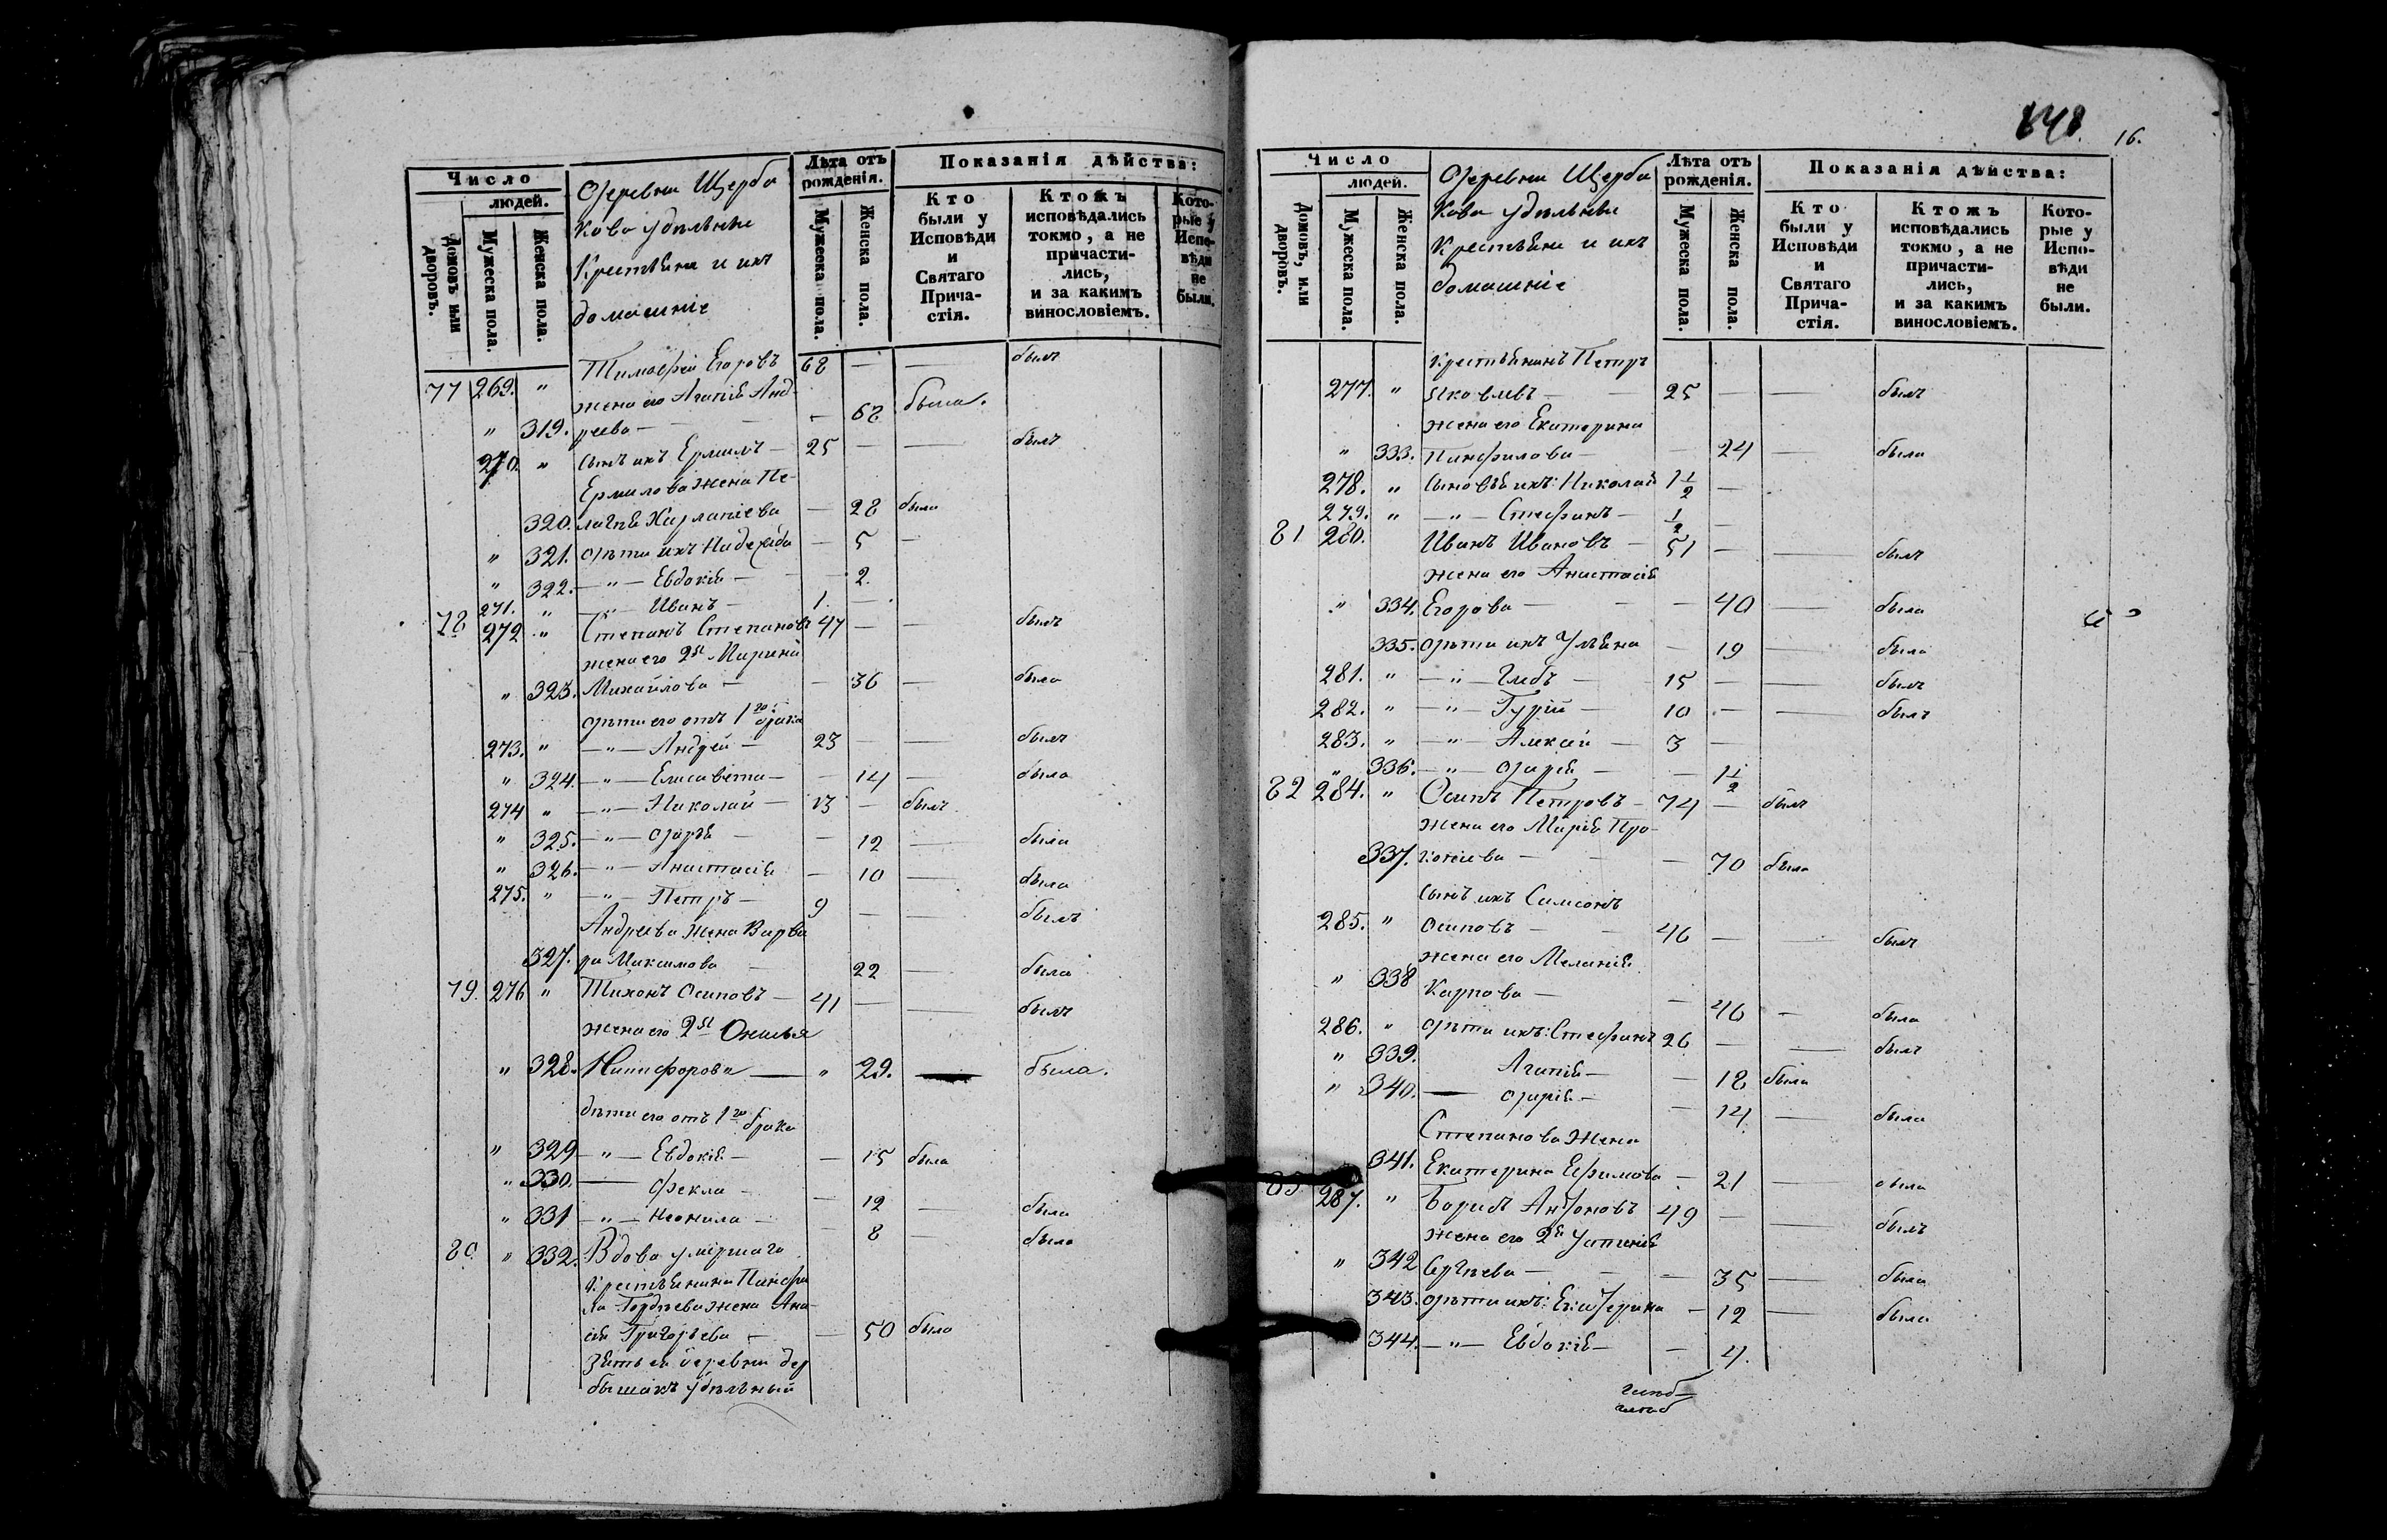 Число
людей.
Домовъ или дворовъ.
Мужеска пола.
Женска пола.
Деревни Щерба
кова удѣльные
Крестьяне и ихъ
домашніе
Лѣта отъ рожденія.
Мужеска пола.
Женска пола.
Показанія дѣйства:
Кто были у Исповѣди и Святаго Прича- стія.
Ктожъ исповѣдались токмо, а не причасти- лись, и за какимъ винословіемъ.
Кото- рые у Испо- вѣди не были.
77 269. " Тимофей Егоровъ 68 — — былъ
жена его Агапія Анд-
" 319. реева — — 68 была.
270. " сынъ ихъ Ермилъ — 25 — — былъ
Ермилова жена Пе-
320. лагія Харлапіева — 28 была
" 321. дѣти ихъ Надежда — 5 —
" 322. — " — Евдокія — — 2.
271. " — " — Иванъ — 1. —
78 272 " Степанъ Степановъ 47 — — былъ
жена его 2я Марина
" 323. Михайлова — — 36 — была
дѣти его отъ 1го брака
273. " — " — Андрей — 23 — — былъ
" 324. — " — Елисавета — — 14 — была
274 " — " — Николай — 13 — былъ
" 325. — " — Дарья — — 12 — была
" 326. — " — Анастасія — 10 — была
275. " — " — Петръ — 9 — — былъ
Андреева жена Варва
327. ра Максимова — 22 — была
79. 276 " Тихонъ Осиповъ — 41 — — былъ
жена его 2я
" 328. Никифорова — " 29. — была.
дѣти его отъ 1го брака
" 329 — " — Евдокія — — 15 была
" 330. — Фекла — — 12 — была
" 331 — " — Неонила — — 8 — была
80 " 332. Вдова умершаго
крестьянина Панфи
ла Гордѣева жена Ана-
сія Григорьева — — 50 была
Зять ея деревни Дер
бышакъ удѣльный
848. 16.
Число
людей.
Домовъ, или дворовъ.
Мужеска пола.
Женска пола.
Деревни Щерба
кова удѣльные
Крестьяне и ихъ
домашніе
Лѣта отъ рожденія.
Мужеска пола.
Женска пола.
Показанія дѣйства:
Кто были у Исповѣди и Святаго Прича- стія.
Ктожъ исповѣдались токмо, а не причасти- лись, и за какимъ винословіемъ.
Кото- рые у Испо- вѣди не были.
крестьянинъ Петръ
277. " Яковлевъ — — 25 — — былъ
жена его Екатерина
" 333. Панфилова — — 24 — была
278. " сыновья ихъ: Николай 1 1/2 —
279. " — " — Стефанъ — 1/2 —
81 280. Иванъ Ивановъ — 51 — — былъ
жена его Анастасія
" 334. Егорова — — — 40 — была
335. дѣти ихъ Ульяна — 19 — была
281. " — " — Глебъ — 15 — — былъ
282. " — " — Гурій — 10 — — былъ
283. " — " — Алексій — 3 —
" 336. — " — Дарія — — 1 1/2
82 284. " Осипъ Петровъ — 74 — былъ
жена его Марія Про-
337. копіева — — — 70 была
сынъ ихъ Симеонъ
285. " Осиповъ — — 46 — — былъ
жена его Меланія
" 338 Карпова — — 46 — была
286. " дѣти ихъ: Стефанъ 26 — — былъ
" 339. Агапія — — 18 была
" 340. — Дарія — — 14 — была
Степанова жена
341. Екатерина Ефимова — 21 — была
83 287. " Борисъ Антоновъ 49 — — былъ
жена его 2я Устинія
" 342 Сергѣева — — — 35 — была
343. дѣти ихъ: Екатерина — 12 — была
344. — " — Евдокія — — 4.